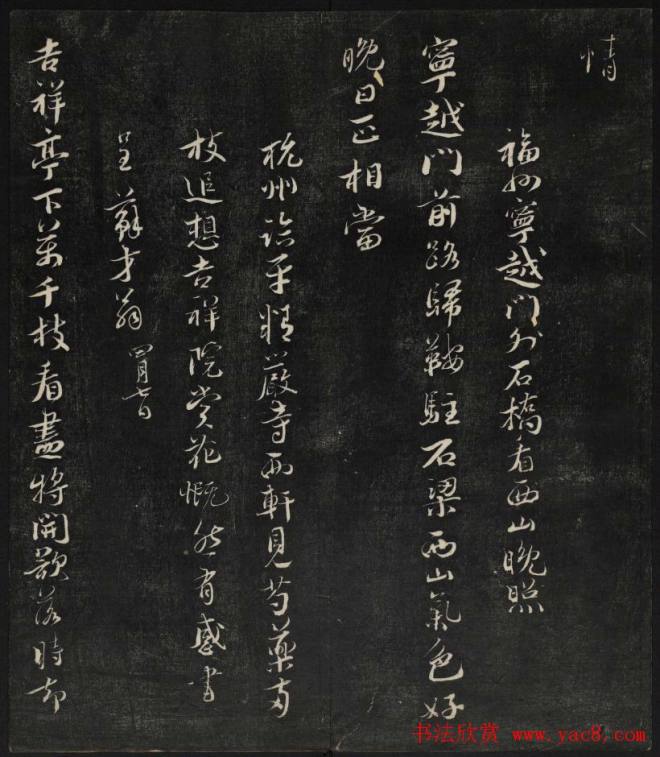 情
福州寧越門外石橋看西山晚照
寧越門前路歸鞍駐石梁西山氣色好
晚日正相當
杭州臨平精嚴寺西軒見芍藥兩
枝追想吉祥院赏花慨然有感書
呈 蘇才翁 四月七日
吉祥亭下萬千枝看盡將開欲落時却
书法欣赏 www.yac8.com